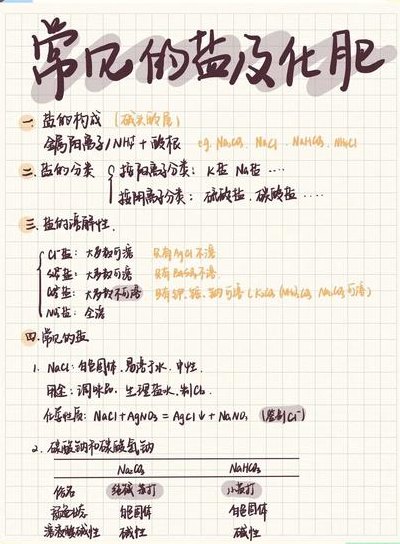 常见的盐及化肥
一. 盐的构成（碱头酸尾）
金属阳离子/NH₄⁺ + 酸根 eg. Na₂CO₃、NaCl、NaHCO₃、NH₄Cl
二. 盐的分类 按阳离子分类：K盐 Na盐 ····
按阴离子分类：硫酸盐、碳酸盐 ····
三. 盐的溶解性.
Cl⁻盐：大多数可溶 只有AgCl不溶
SO₄²⁻盐：大多数可溶 只有BaSO₄不溶.
CO₃²⁻盐：大多数不可溶 只有钾、铵、钠可溶（K₂CO₃ (NH₄)₂CO₃ Na₂CO₃可溶）
NO₃⁻盐：全溶
四. 常见的盐
1. NaCl：白色固体、易溶于水、中性.
用途：调味品、生理盐水、制Cl₂.
化学性质：NaCl + AgNO₃ = AgCl↓ + NaNO₃ （鉴别Cl⁻）
2. 碳酸钠和碳酸氢钠
Na₂CO₃ NaHCO₃
俗名 纯碱 苏打 小苏打
颜色状态 白色固体 白色固体
溶液酸碱性 碱性 碱性